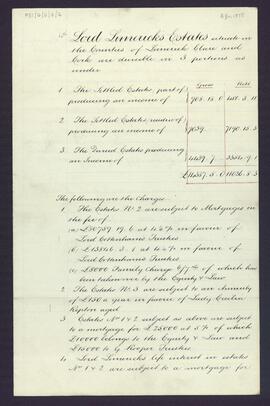 Lord Limericks Estates situate in
the Counties of Limerick Clare and
Cork are divisible in 3 portions as
under
Gross Nett
1 The Settled Estates, part of
producing an income of 908.15.0
2 The Settled Estates, residue of
producing an income of 9039. 7190.15.3
3 The Devised Estates producing
an Income of
The following are the Charges
1 Estates No 2 are subject to Mortgages in
the fee of
(a) £30759.19.6 at 4 % in favor of
Lord Cottenhams Trustees
(b) £13846.3. at 4 % in favor of
Lord Cottenhams Trustees
(c) £8000 Family Charge of which has
been taken over by the Equity & Law
2 The Estates No 3 are subject to an Annuity
of £150 a year in favor of Lady Cecilia
Repton aged
3 Estates No 1 & 2 subject as above are subject
to a mortgage for £25000 at 5 % of which
£10000 belongs to the Equity & Law and
£15000 to Hooper Trustees
4 Lord Limericks life interest in estates
No 1 & 2 are subject to a mortgage for